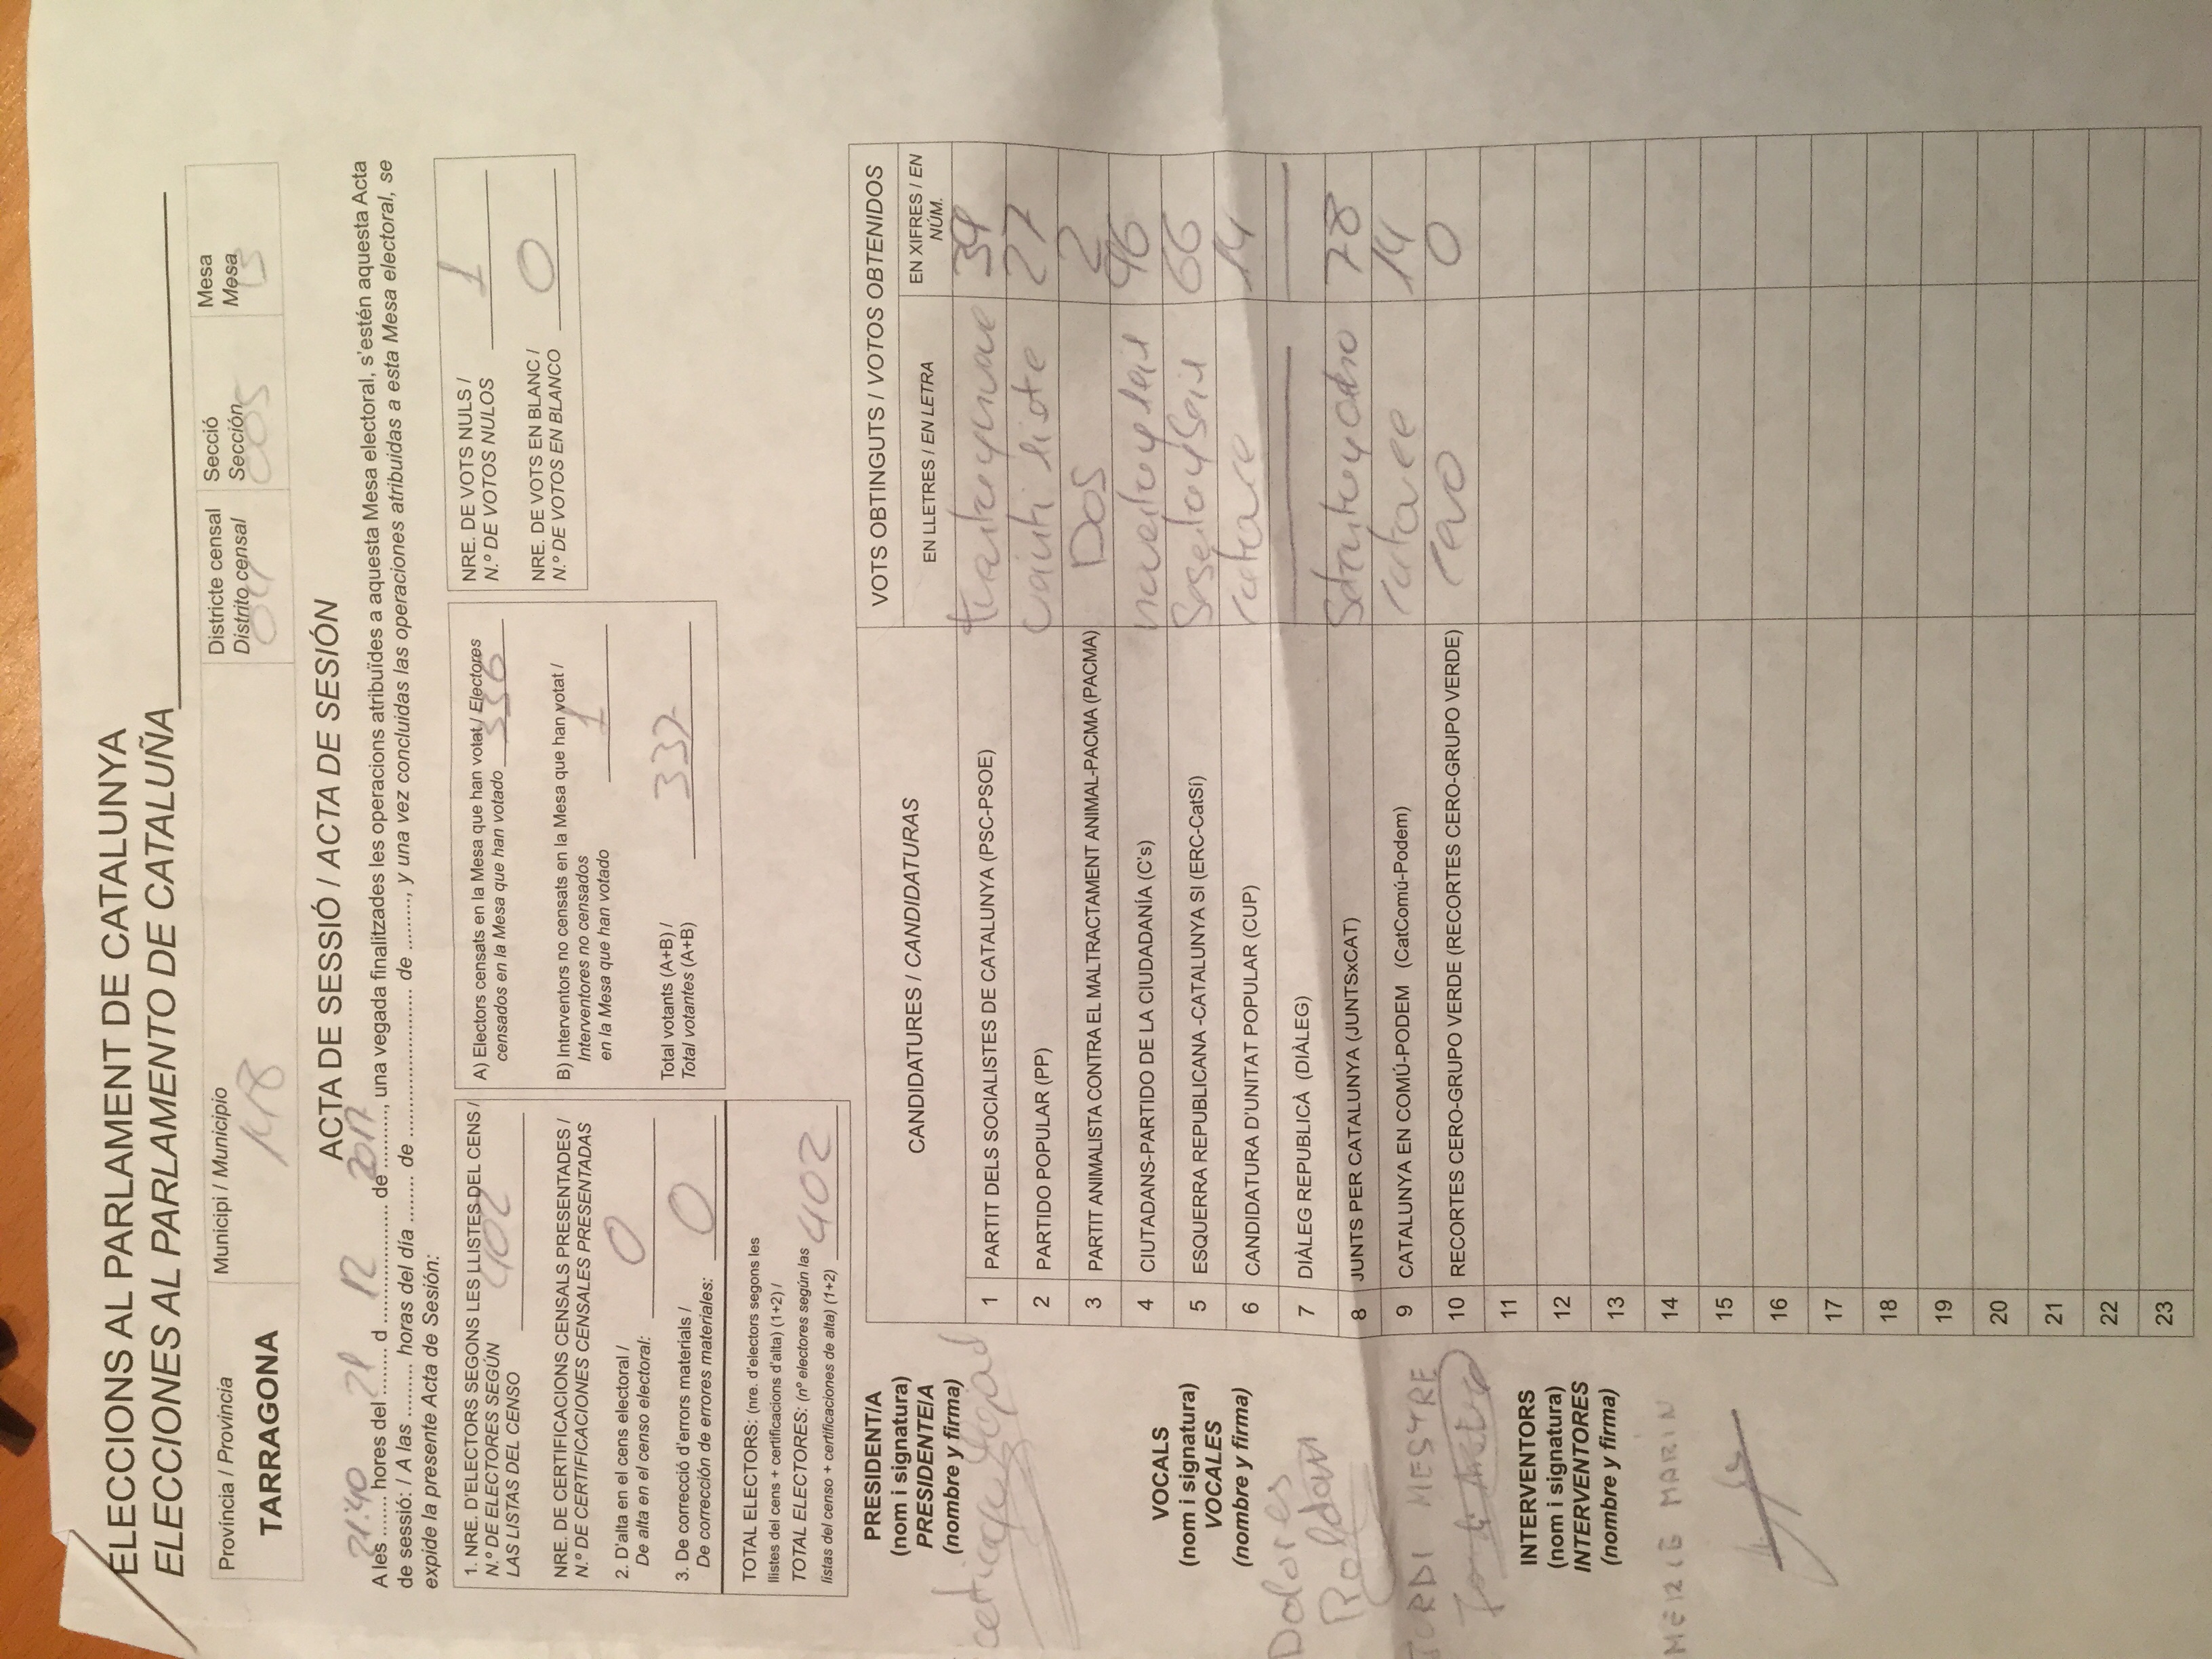 ELECCIONS AL PARLAMENT DE CATALUNYA
ELECCIONES AL PARLAMENTO DE CATALUÑA
Província / Provincia
TARRAGONA
Municipi / Municipio
148
Districte censal
Distrito censal
04
Secció
Sección
005
Mesa
Mesa
B
ACTA DE SESSIÓ / ACTA DE SESIÓN
21:40 21 12 2017
A les ....... hores del ........ d .................... de .........., una vegada finalitzades les operacions atribuïdes a aquesta Mesa electoral, s'estén aquesta Acta
de sessió: / A las ......... horas del día ........ de ......................... de ........., y una vez concluidas las operaciones atribuidas a esta Mesa electoral, se
expide la presente Acta de Sesión:
1. NRE. D'ELECTORS SEGONS LES LLISTES DEL CENS /
N.º DE ELECTORES SEGÚN
LAS LISTAS DEL CENSO 402
NRE. DE CERTIFICACIONS CENSALS PRESENTADES /
N.º DE CERTIFICACIONES CENSALES PRESENTADAS
2. D'alta en el cens electoral /
De alta en el censo electoral: 0
3. De correcció d'errors materials /
De corrección de errores materiales: 0
TOTAL ELECTORS: (nre. d'electors segons les
llistes del cens + certificacions d'alta) (1+2) /
TOTAL ELECTORES: (nº electores según las
listas del censo + certificaciones de alta) (1+2) 402
A) Electors censats en la Mesa que han votat / Electores
censados en la Mesa que han votado 336
B) Interventors no censats en la Mesa que han votat /
Interventores no censados
en la Mesa que han votado 1
Total votants (A+B) /
Total votantes (A+B) 337
NRE. DE VOTS NULS /
N.º DE VOTOS NULOS 1
NRE. DE VOTS EN BLANC /
N.º DE VOTOS EN BLANCO 0
PRESIDENT/A
(nom i signatura)
PRESIDENTE/A
(nombre y firma)
VOCALS
(nom i signatura)
VOCALES
(nombre y firma)
Dolores
Roldan
JORDI MESTRE
INTERVENTORS
(nom i signatura)
INTERVENTORES
(nombre y firma)
MARIN
CANDIDATURES / CANDIDATURAS
VOTS OBTINGUTS / VOTOS OBTENIDOS
EN LLETRES / EN LETRA
EN XIFRES / EN
NÚM.
1 PARTIT DELS SOCIALISTES DE CATALUNYA (PSC-PSOE) treinta y nueve 39
2 PARTIDO POPULAR (PP) vainti siete 27
3 PARTIT ANIMALISTA CONTRA EL MALTRACTAMENT ANIMAL-PACMA (PACMA) DOS 2
4 CIUTADANS-PARTIDO DE LA CIUDADANÍA (C's) noventa y seis 96
5 ESQUERRA REPUBLICANA -CATALUNYA SI (ERC-CatSí) Sesenta y Seis 66
6 CANDIDATURA D'UNITAT POPULAR (CUP) catorce 14
7 DIÀLEG REPUBLICÀ (DIÀLEG)
8 JUNTS PER CATALUNYA (JUNTSxCAT) Setenta y ocho 78
9 CATALUNYA EN COMÚ-PODEM (CatComú-Podem) catorce 14
10 RECORTES CERO-GRUPO VERDE (RECORTES CERO-GRUPO VERDE) cero 0
11
12
13
14
15
16
17
18
19
20
21
22
23